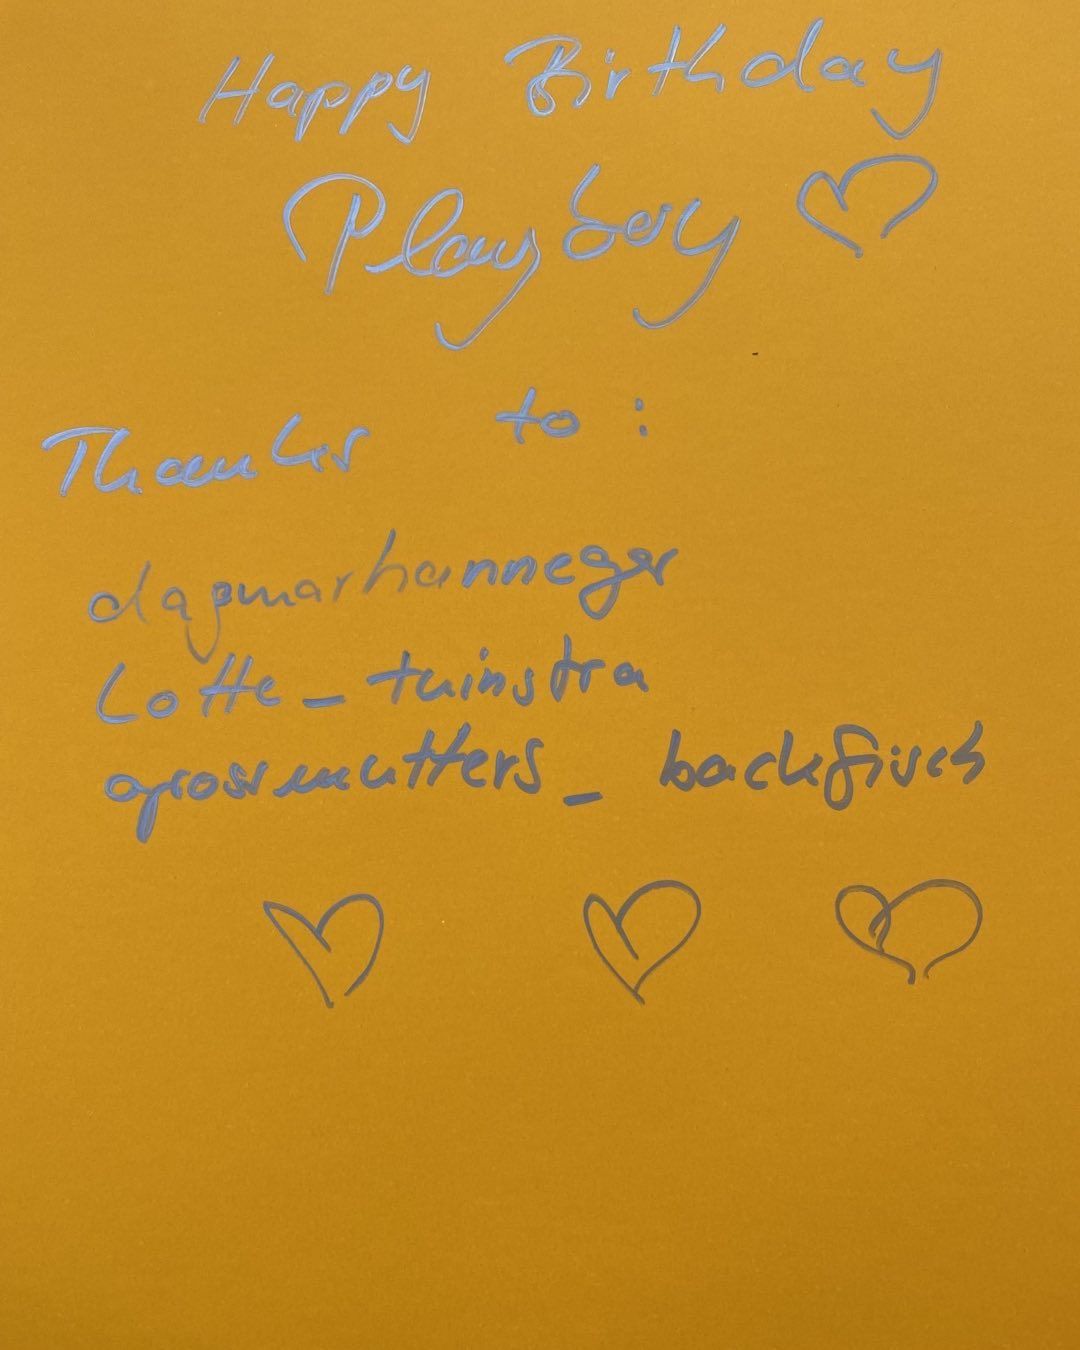 Happy Birthday
Playboy
Thanks to:
dagmarhanneger
Lotte_tuinstra
grossmutters_backfisch